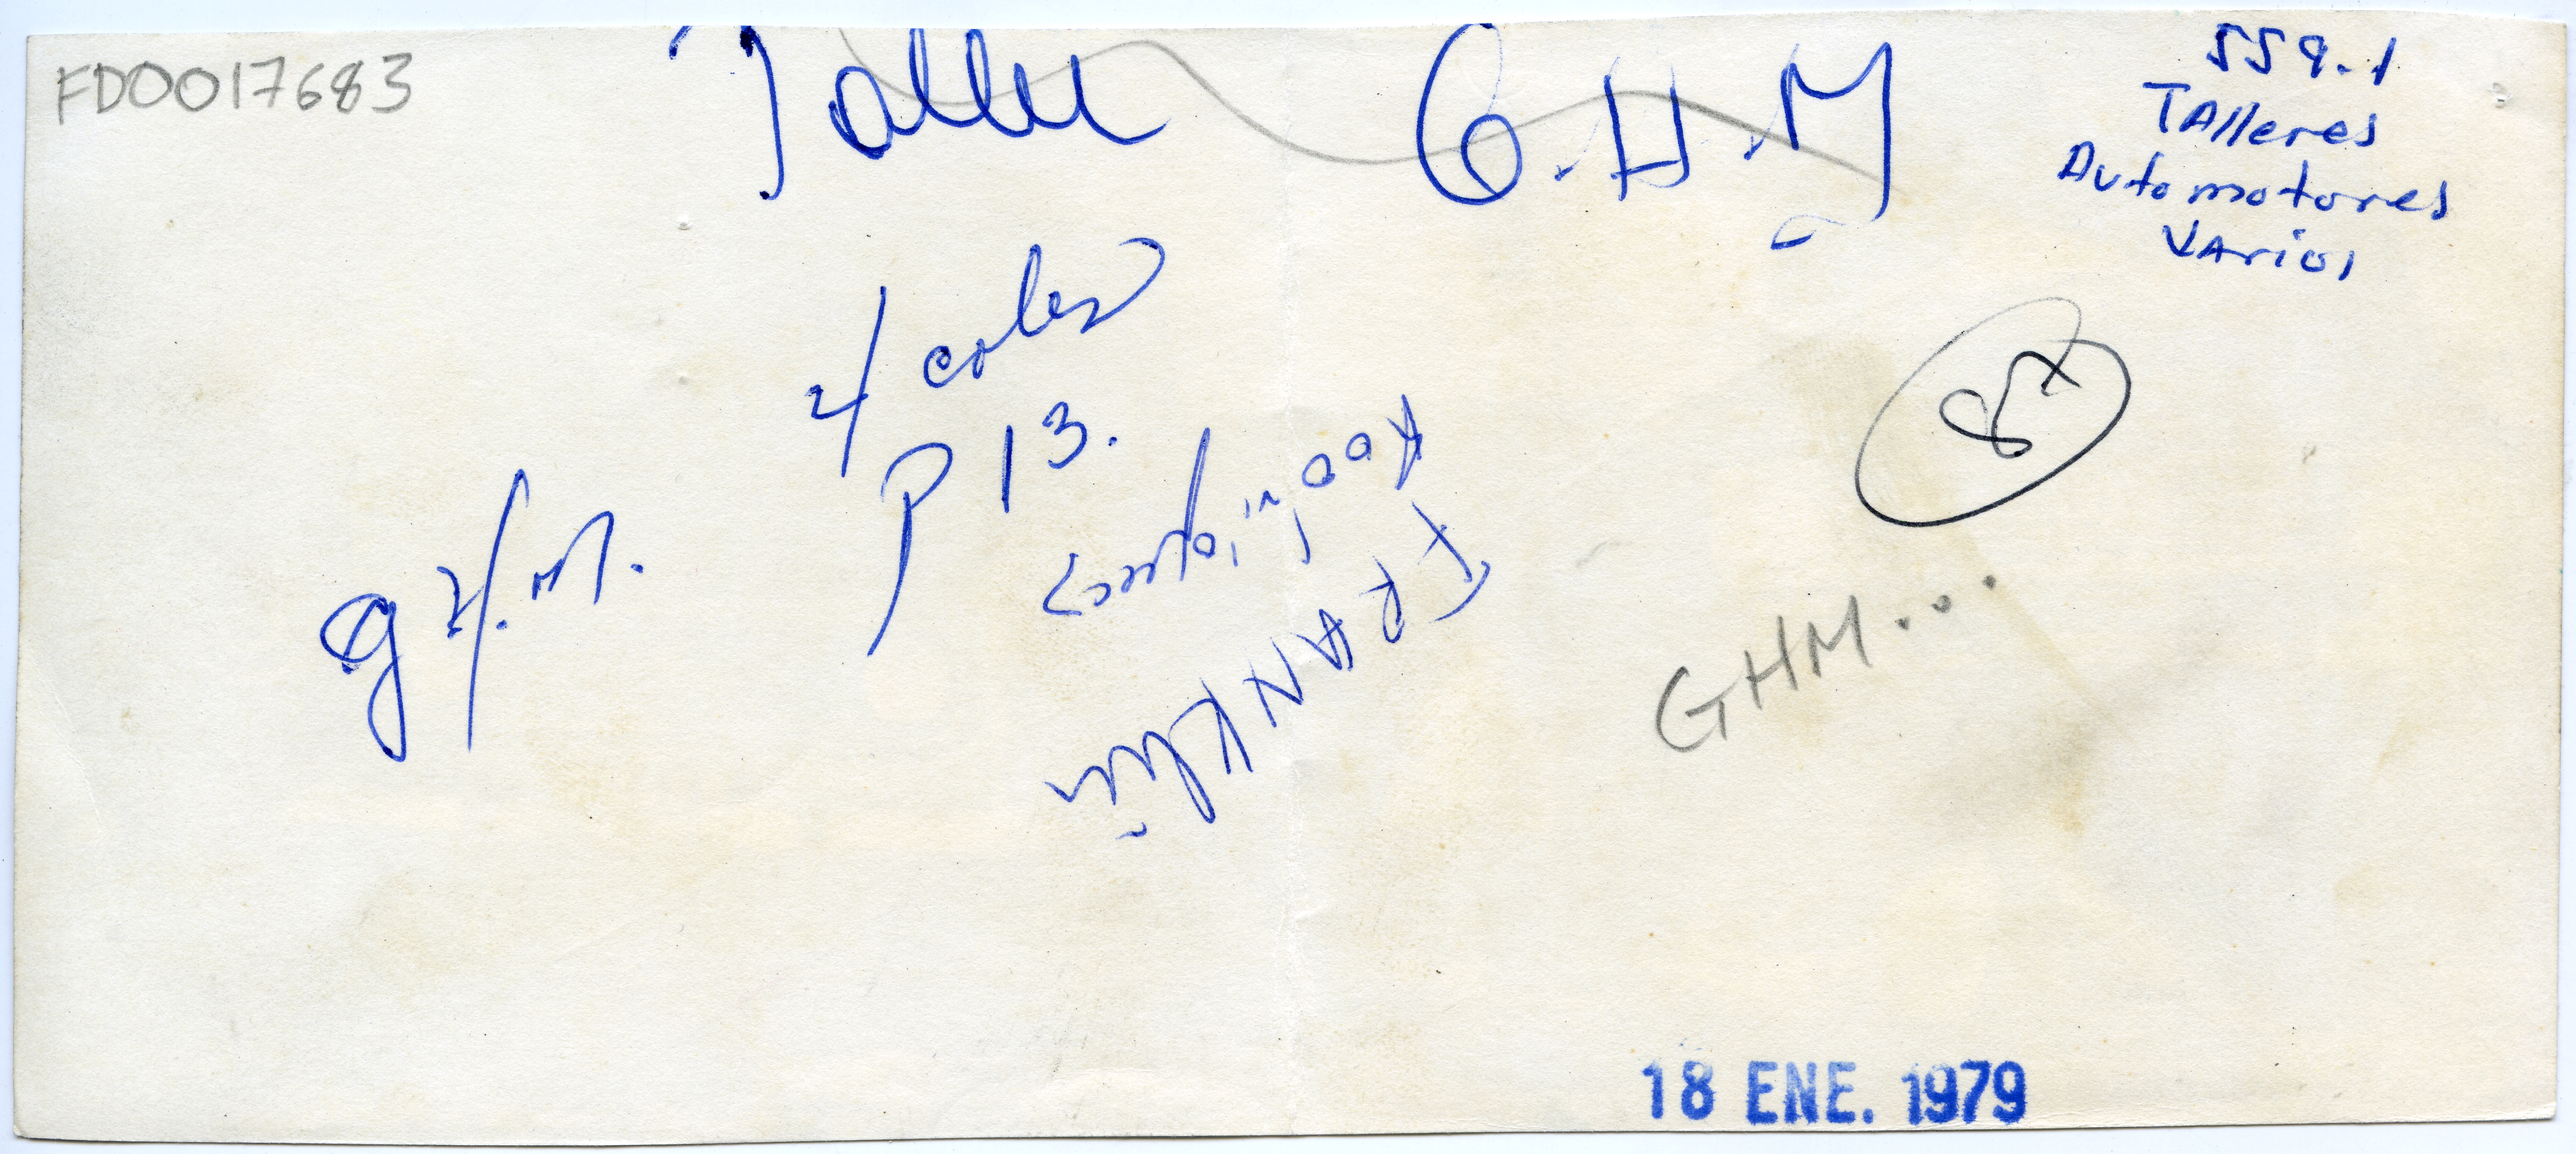 FD0017683
Taller G.H.M
559.1
Talleres
Automotores
Varios
4/ coles
P 13.
87
FRANKlin
GHM...
18 ENE. 1979